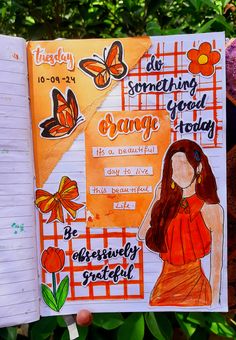 Tuesday
10-09-24
do
something
good
today
orange
It's a beautiful
day to live
this beautiful
life.
Be
obsessively
grateful